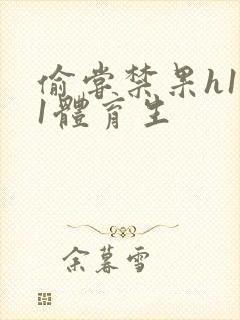 偷嘗禁果h1
1體育生
余暮雪